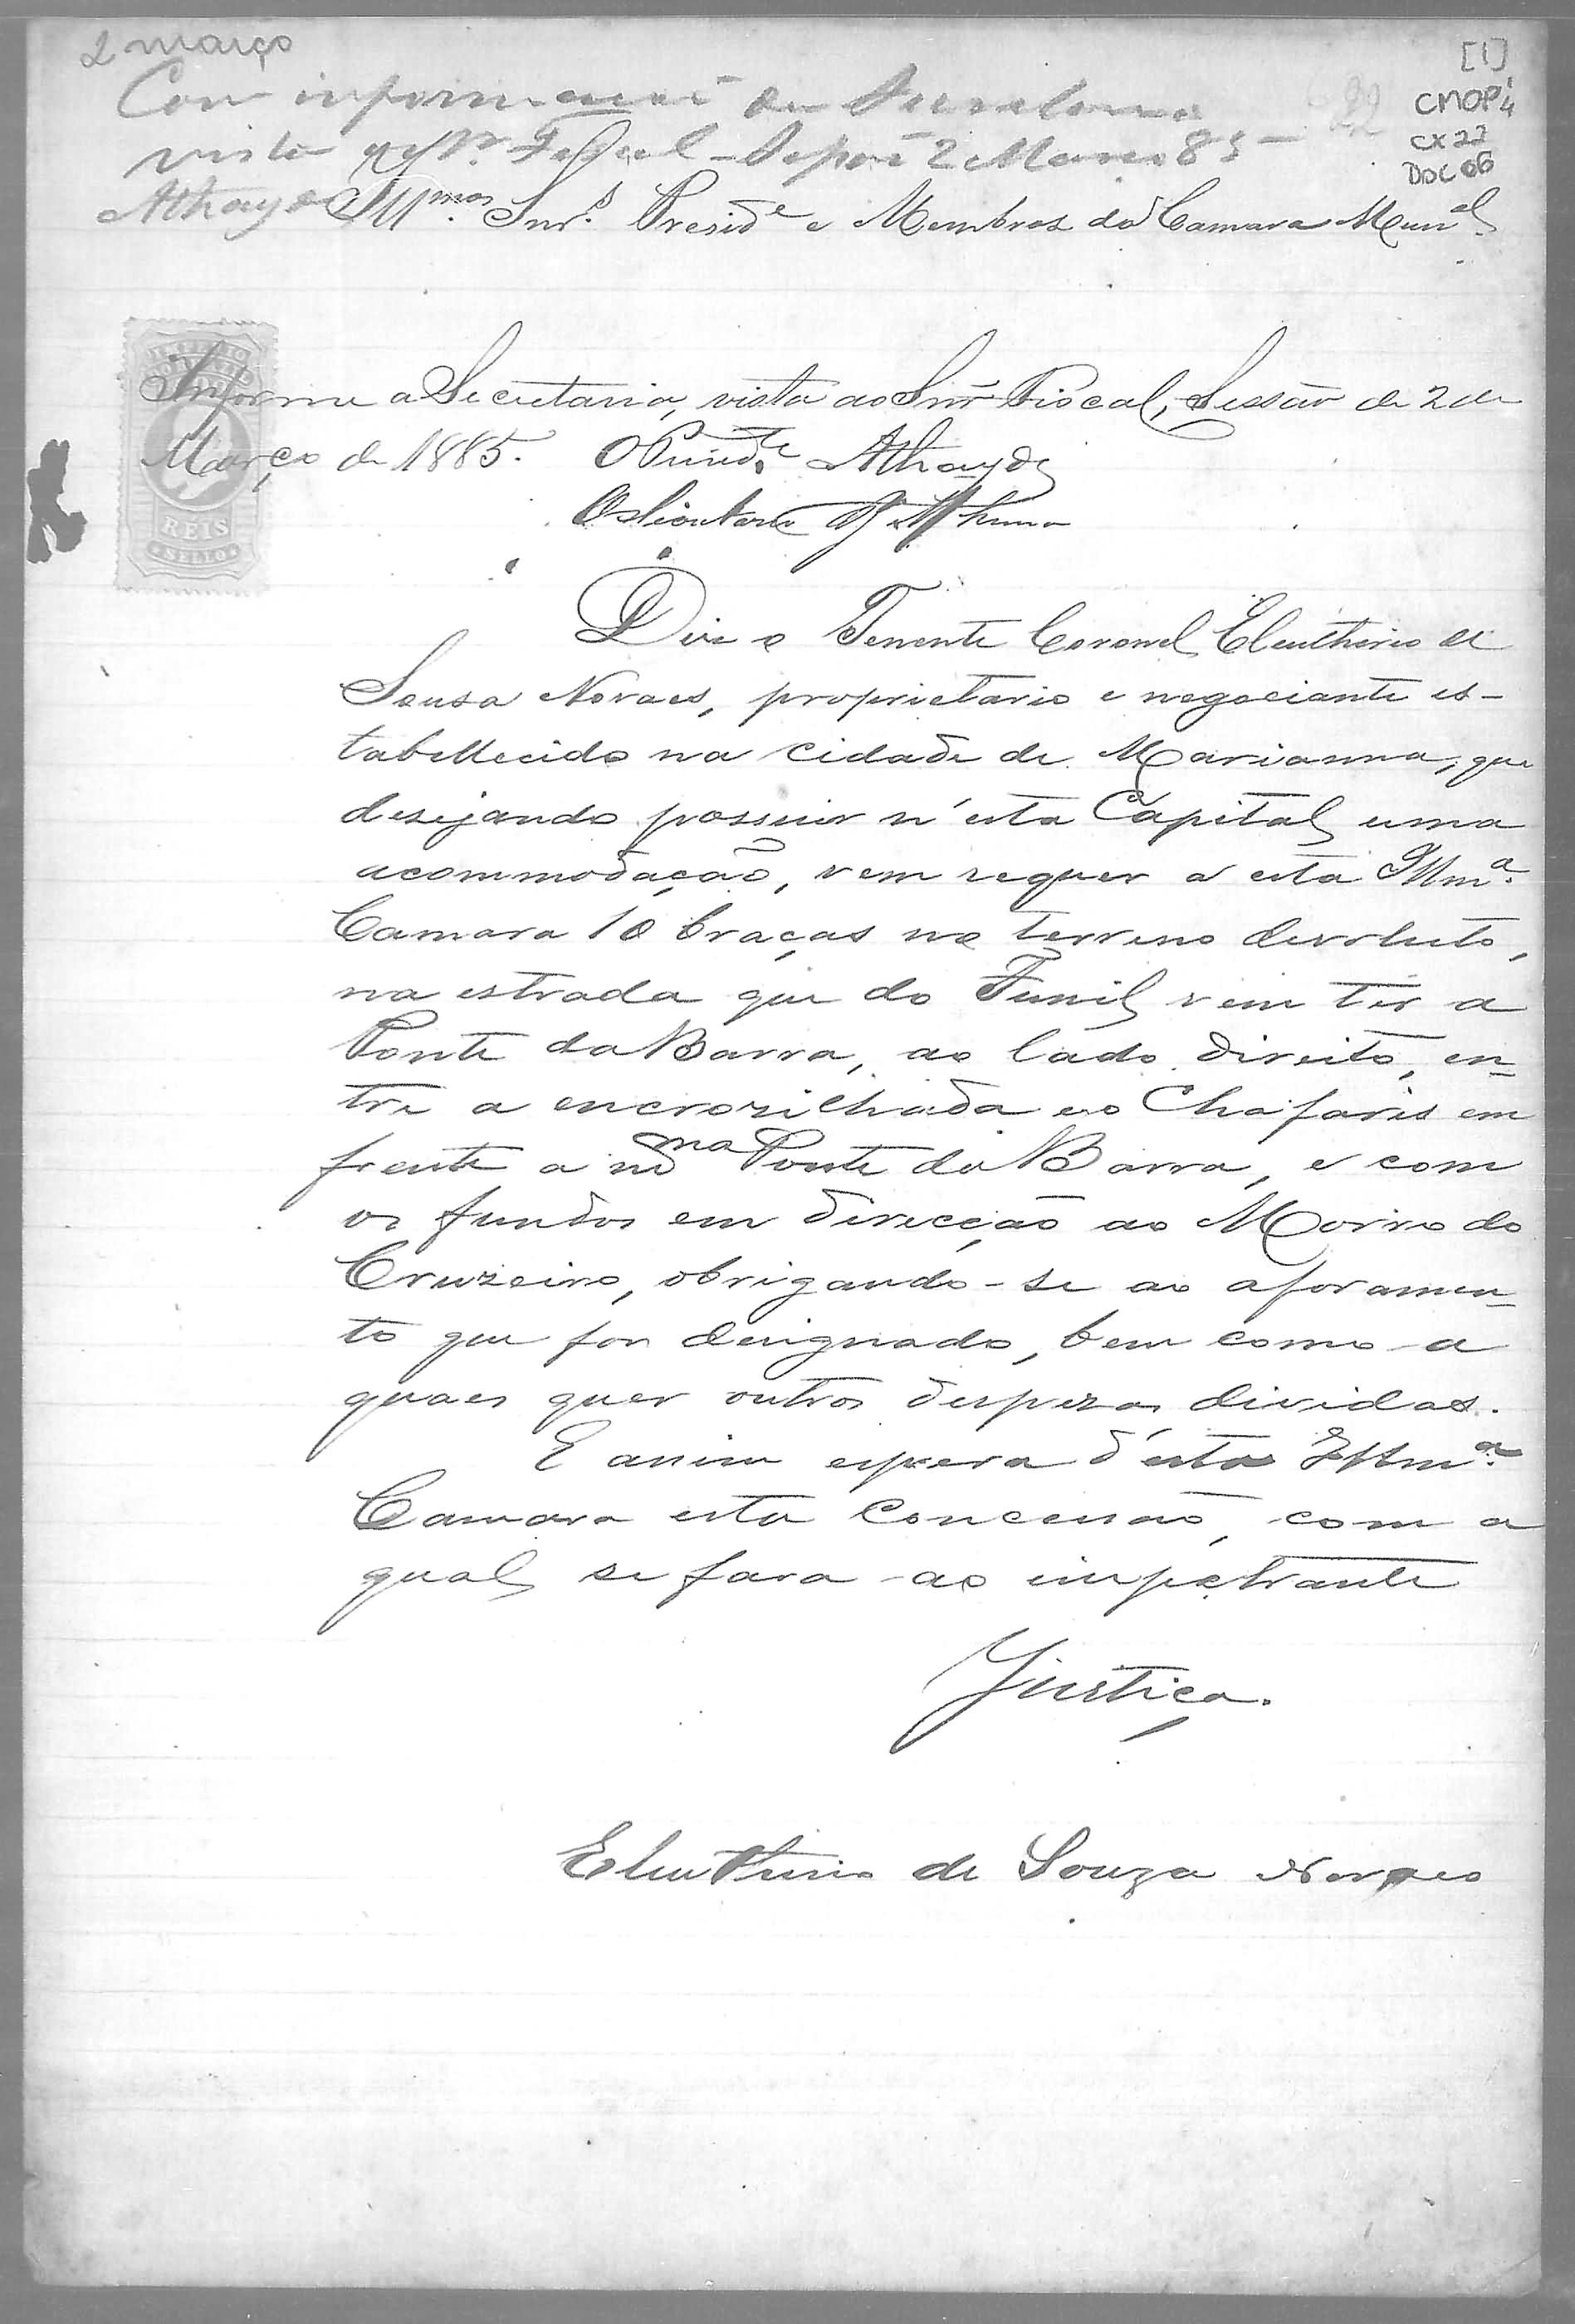 2 março
[1]
CMOP
CX 22
DOC 06
Com informação da Secretaria
vista ao Sr. Fiscal - 2 Março 85 -
Athayde
Illmos. Snrs. Preside e Membros da Camara Munal.
Informe a Secretaria, vista ao Snr Fiscal, Sessão de 2 de
Março de 1885. O Preside. Athayde
REIS
SELLO
Diz o Tenente Coronel Eleutherio de
Sousa Novaes, proprietario e negociante es-
tabellecido na cidade de Marianna, que
desejando possuir n'esta Capital uma
acommodação, vem requer a esta Illma.
Camara 10 braças no terreno devoluto,
na estrada que do Funil vem ter a
Ponte da Barra, ao lado direito, en-
tre a encrozilhada e o Chafaris em
frente a mma Ponte da Barra, e com
os fundos em direcção ao Morro do
Cruzeiro, obrigando-se ao aforamen-
to que for designado, bem como a
quaes quer outros despezas dividas.
E assim espera d'esta Illma.
Camara esta Concessão, com a
qual se fara ao impetrante
Justiça.
Eleutherio de Souza Novaes